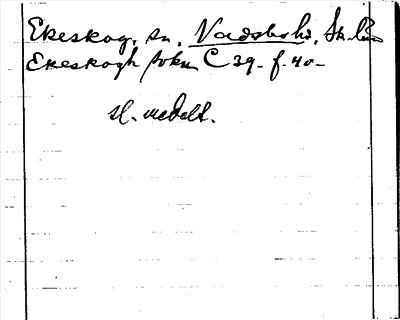 Ekeskog, sn, Vadsbo hd, Sk. län
Ekeskogh sokn C 39. f. 40 -
sl. medelt.